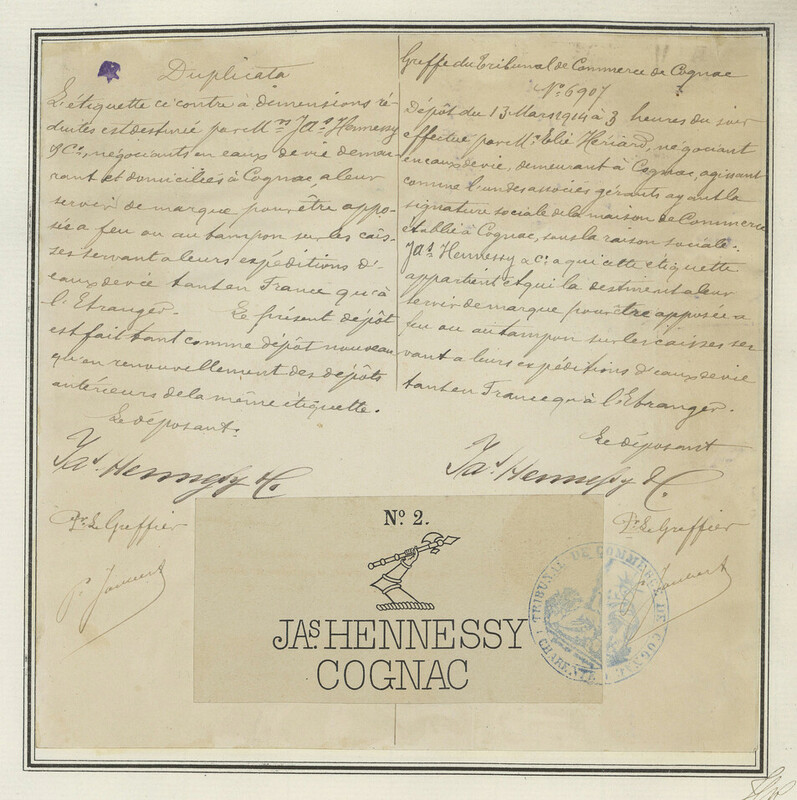 Duplicata
L'étiquette ci contre à dimensions ré-
duites est destiné par M.rs Jas Hennessy
& Co, négociants en eaux de vie demeu-
rant et domiciliés à Cognac, a leur
servir de marque pour être appo-
sée a feu ou au tampon sur les cais-
ses servant a leurs expéditions d'
eaux de vie tant en France qu'à
l'Etranger. Le présent dépôt
est fait tant comme dépôt nouveau
qu'en renouvellement des dépôts
antérieurs de la même étiquette.
Le déposant:
Jas Hennessy & Co
Pr Le Greffier
Greffe du Tribunal de Commerce de Cognac
No 6907
Dépôt du 13 Mars 1914 à 3 heures du soir
effectué par M. Elie Hériard, négociant
en eaux de vie, demeurant à Cognac, agissant
comme l'un des associés gérants ayant la
signature sociale de la maison de Commerce
établie à Cognac, sous la raison sociale:
Jas Hennessy & Co a qui cette etiquette
appartient et qui la destinent a leur
servir de marque pour être apposée a
feu ou au tampon sur les caisses ser-
vant a leurs expéditions d'eaux de vie
tant en France qu'à l'Etranger.
Le déposant
Jas Hennessy & Co
Pr Le Greffier
No. 2.
JAS. HENNESSY
COGNAC
TRIBUNAL DE COMMERCE DE COGNAC
CHARENTE